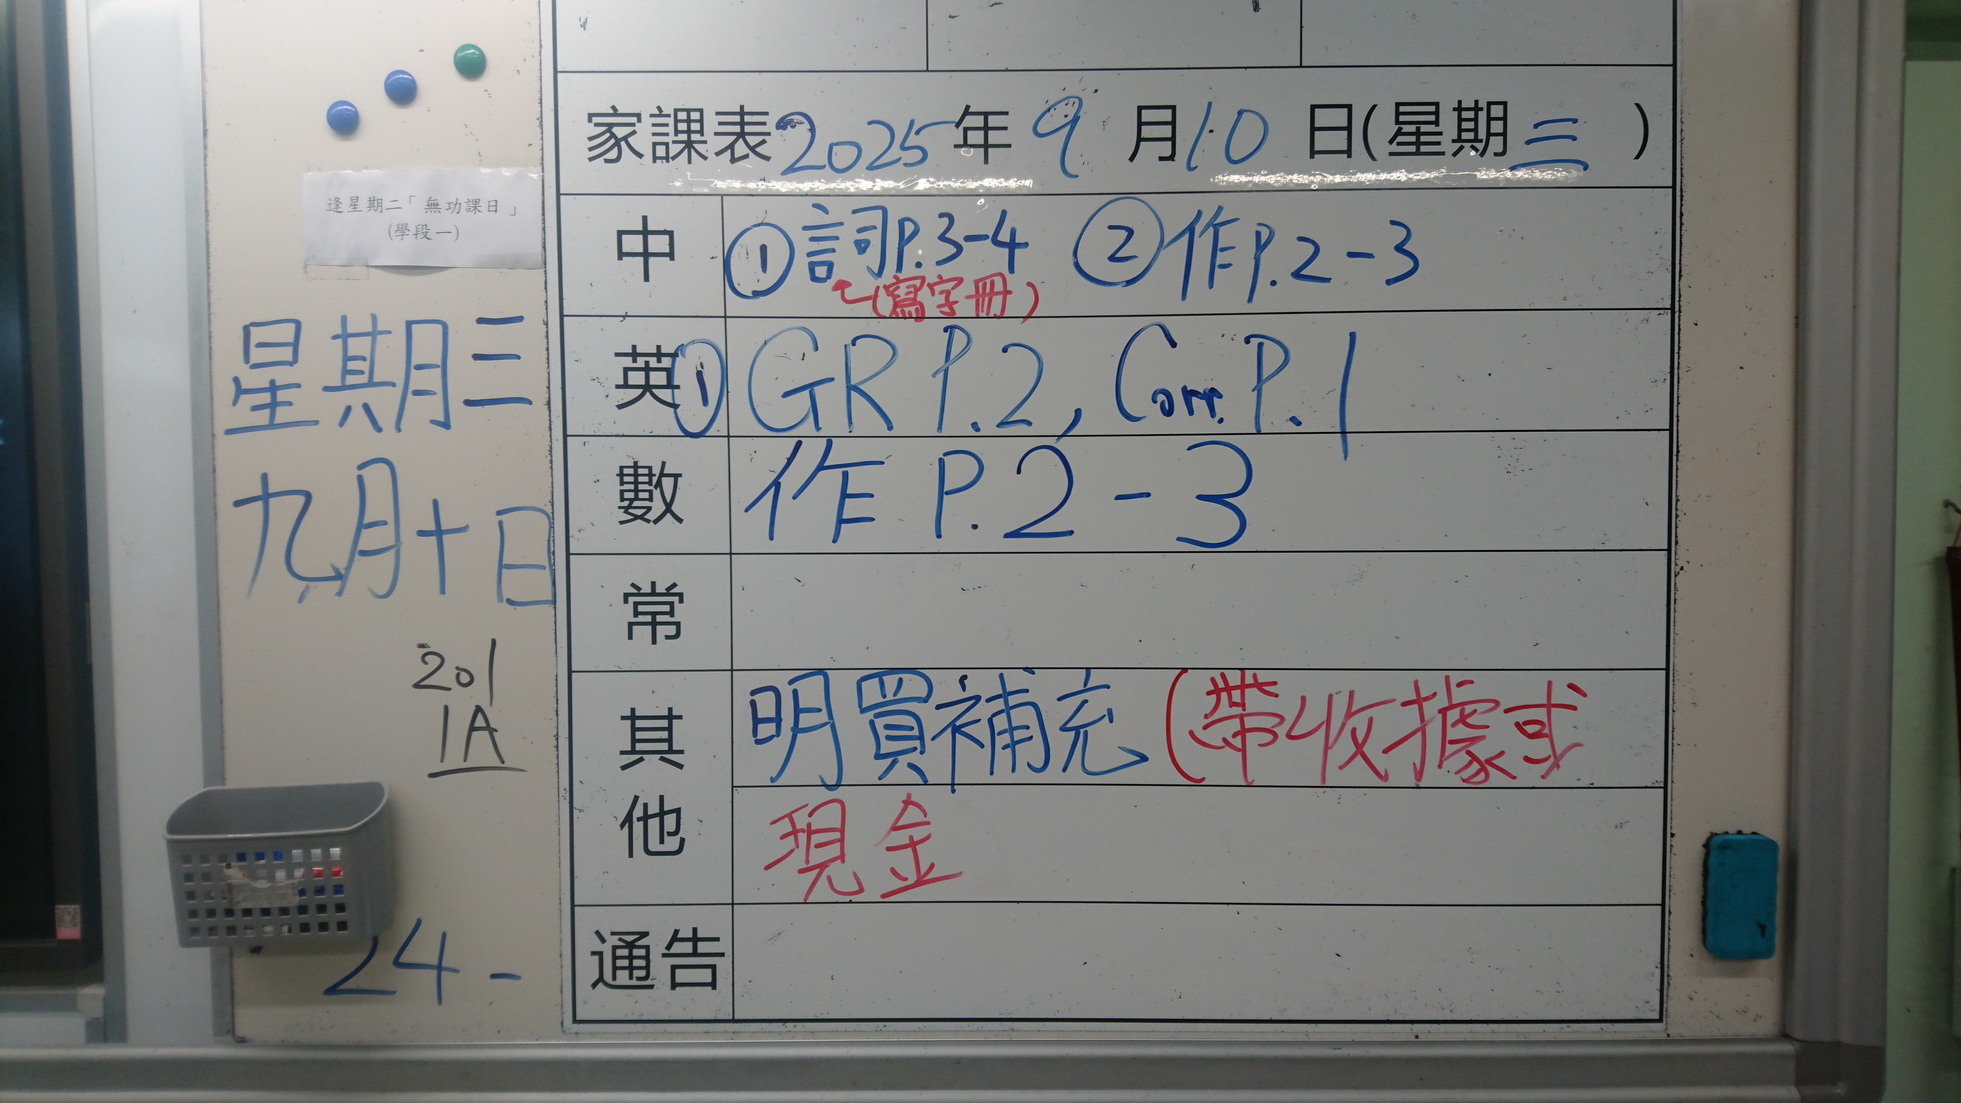 家課表2025年9月10日(星期三)
逢星期二「無功課日」
(學段一)
中 ①詞P.3-4 ②作P.2-3
(寫字冊)
英 ①GR P.2, Corr. P.1
數 作 P.2-3
常
其他 明買補充(帶收據或
現金
通告
星期三
九月十日
201
1A
24-